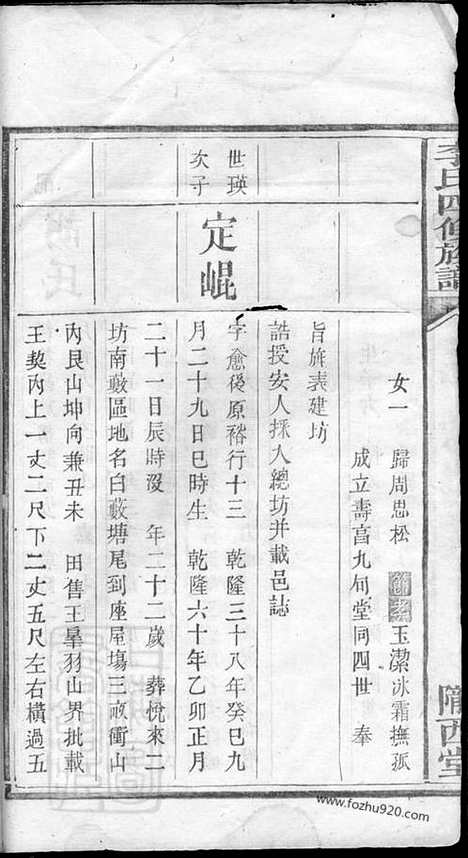 李氏四修族譜
隴西堂
女一　歸周思松　節孝玉潔冰霜撫孤
成立壽富九旬堂同四世　奉
旨旌表建坊
誥授安人採入總坊并載邑誌
世瑛次子
定崐
字愈後原裕行十三　乾隆三十八年癸巳九
月二十九日巳時生　乾隆六十年乙卯正月
二十一日辰時沒　年二十二歲　葬悅來二
坊南數區地名白數塘尾到座屋塲三畝衝山
內艮山坤向兼丑未　田售王臯羽山界批載
王契內上一丈二尺下二丈五尺左右橫過五
www.fozhu920.com